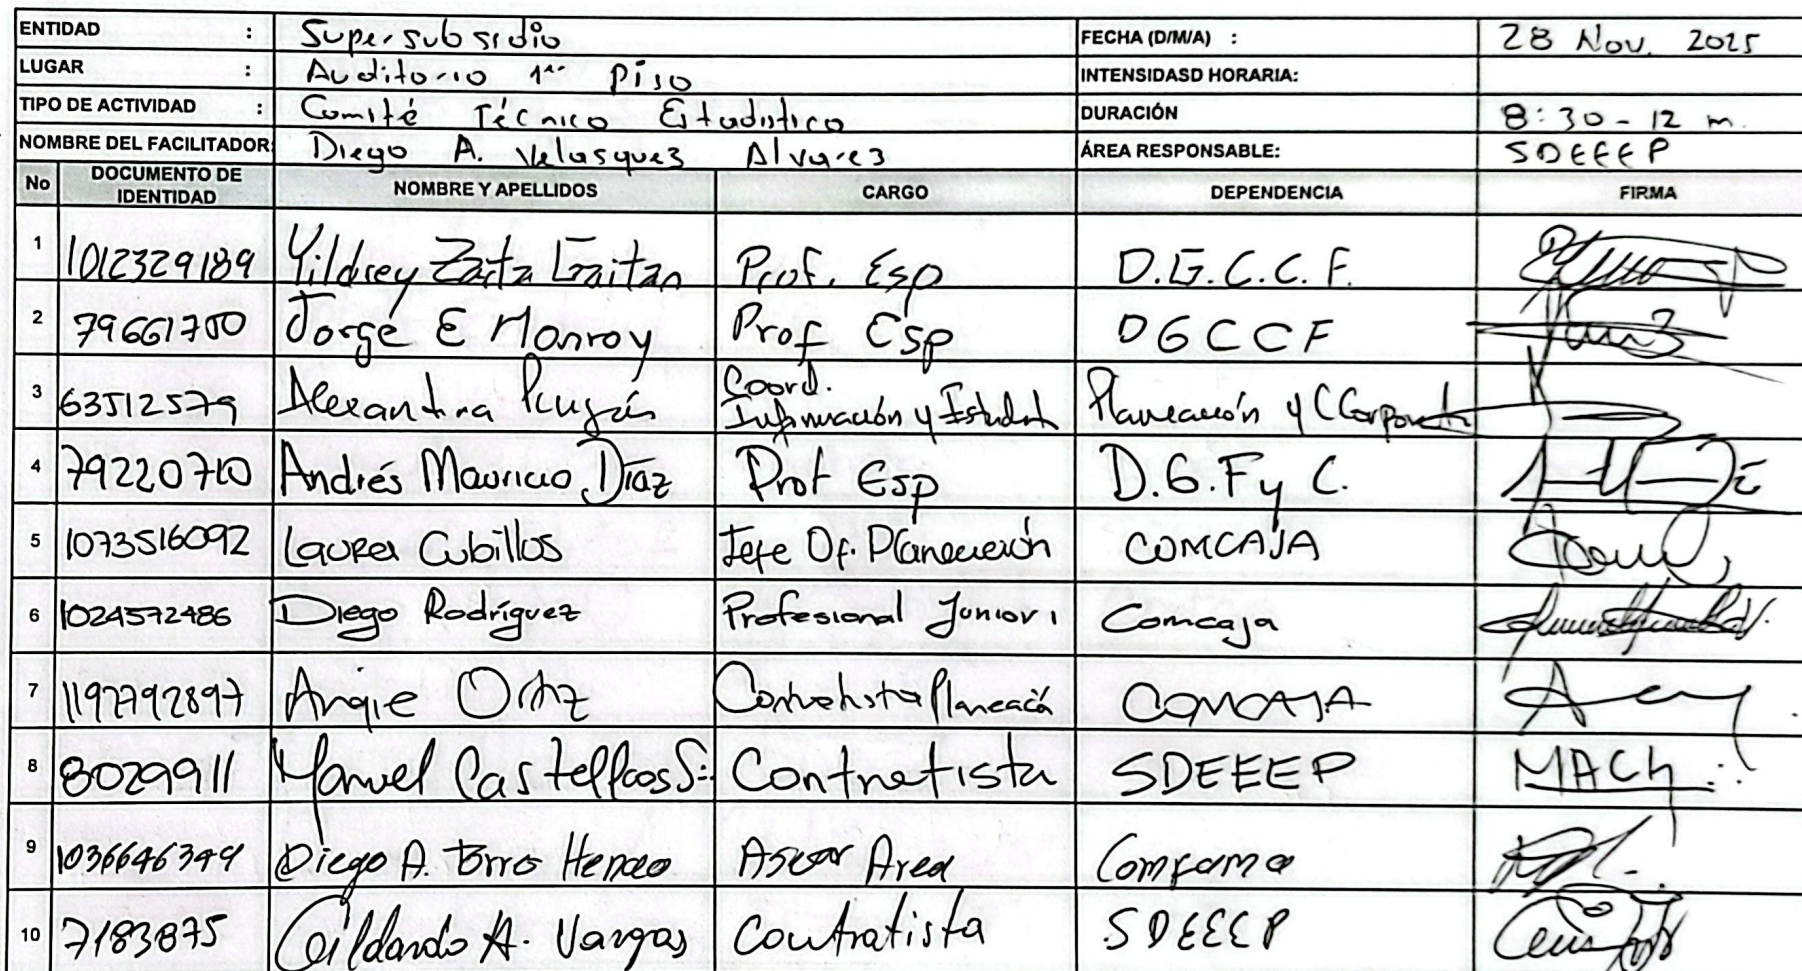 ENTIDAD : Supersubsidio FECHA (D/M/A) : 28 Nov. 2025
LUGAR : Auditorio 1er Piso INTENSIDASD HORARIA:
TIPO DE ACTIVIDAD : Comité Técnico Estadistico DURACIÓN 8:30 - 12 m.
NOMBRE DEL FACILITADOR: Diego A. Velasquez Alvarez ÁREA RESPONSABLE: SDEEEP
No DOCUMENTO DE IDENTIDAD NOMBRE Y APELLIDOS CARGO DEPENDENCIA FIRMA
1 1012329189 Yildrey Zarta Gaitan Prof. Esp D.G.C.C.F.
2 79661700 Jorge E Monroy Prof Esp DGCCF
3 63512579 Alexandra Coord. Información y Estadist Planeación y C Corporat
4 79220710 Andrés Mauricio Díaz Prof Esp D.G.F y C.
5 1073516092 Laura Cubillos Jefe Of. Planeación COMCAJA
6 1024572486 Diego Rodríguez Profesional Junior 1 Comcaja
7 1192792897 Angie Ortiz Contratista Planeació COMCAJA
8 8029911 Manuel Castellanos S. Contratista SDEEEP MACh
9 1036646349 Diego A. Torres Henao Asesor Area Comfama
10 7183875 Gildardo A. Vargas Contratista SDEEEP